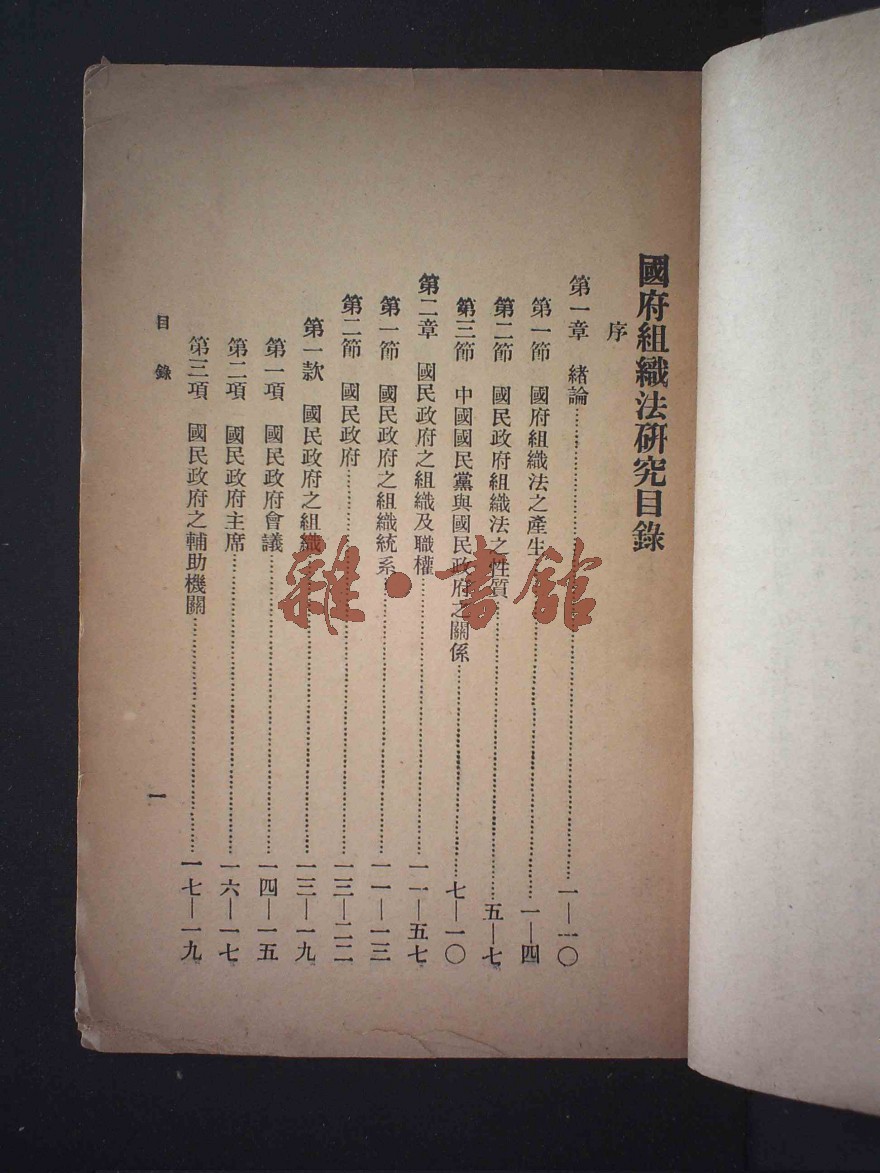 國府組織法研究目錄
序
第一章 緒論……一—一〇
第一節 國府組織法之產生……一—四
第二節 國民政府組織法之性質……五—七
第三節 中國國民黨與國民政府之關係……七—一〇
第二章 國民政府之組織及職權……一一—五七
第一節 國民政府之組織統系……一一—一三
第二節 國民政府……一三—二二
第一款 國民政府之組織……一三—一九
第一項 國民政府會議……一四—一五
第二項 國民政府主席……一六—一七
第三項 國民政府之輔助機關……一七—一九
目錄 一
雜·書館